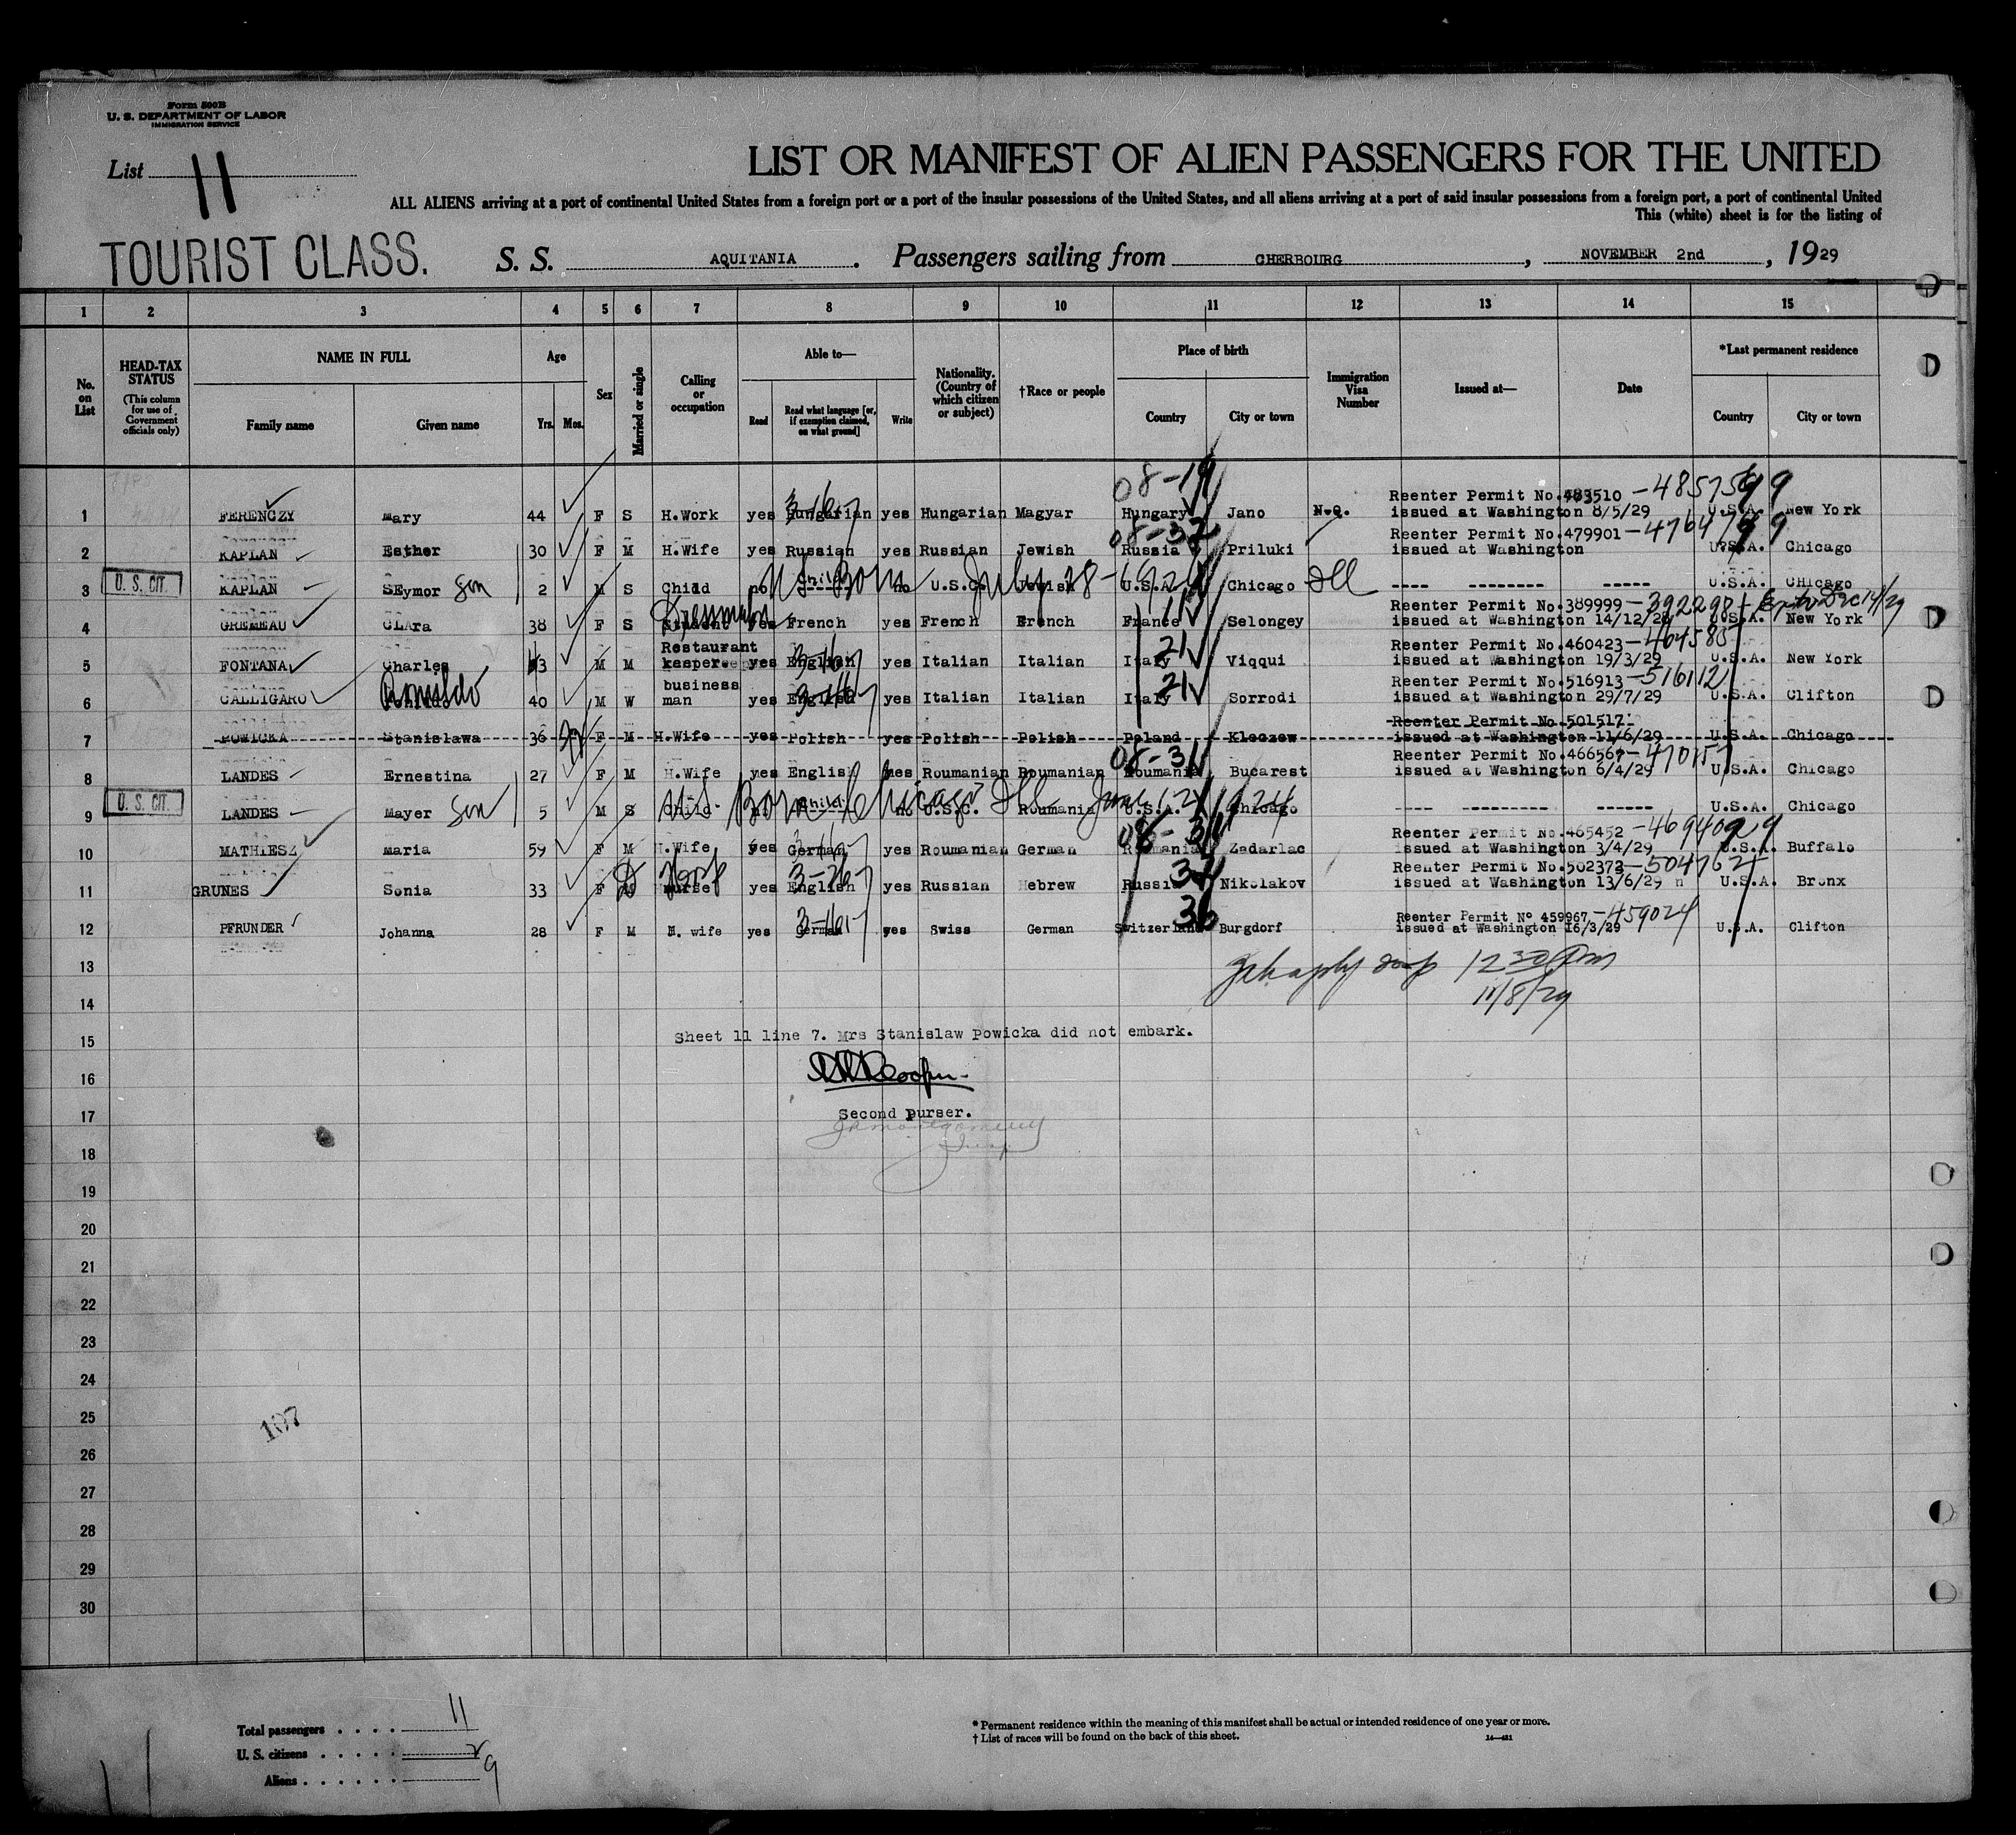 Form 500B
U. S. DEPARTMENT OF LABOR
IMMIGRATION SERVICE
List 11
LIST OR MANIFEST OF ALIEN PASSENGERS FOR THE UNITED
ALL ALIENS arriving at a port of continental United States from a foreign port or a port of the insular possessions of the United States, and all aliens arriving at a port of said insular possessions from a foreign port, a port of continental United
This (white) sheet is for the listing of
TOURIST CLASS. S. S. AQUITANIA. Passengers sailing from CHERBOURG, NOVEMBER 2nd, 1929
1 2 3 4 5 6 7 8 9 10 11 12 13 14 15
No. on List
HEAD-TAX STATUS
(This column for use of Government officials only)
NAME IN FULL
Family name Given name
Age
Yrs. Mos.
Sex
Married or single
Calling or occupation
Able to—
Read Read what language [or, if exemption claimed, on what ground] Write
Nationality. (Country of which citizen or subject)
†Race or people
Place of birth
Country City or town
Immigration Visa Number
Issued at—
Date
*Last permanent residence
Country City or town
08-19
1 FERENCZY Mary 44 F S H.Work yes Hungarian yes Hungarian Magyar Hungary Jano N.Q. Reenter Permit No.483510 issued at Washington 8/5/29 U.S.A. New York
2 KAPLAN Esther 30 F M H.Wife yes Russian yes Russian Jewish Russia Priluki Reenter Permit No.479901 issued at Washington U.S.A. Chicago
3 U. S. CIT. KAPLAN SEymor son 2 M S Chidd no Child no U.S.C. Jewish U.S.A. Chicago Ill ---- -------- ----- U.S.A. CHicago
4 GREMEAU CLAra 38 F S yes French yes French French France Selongey Reenter Permit No.389999 issued at Washington 14/12/28 U.S.A. New York
5 FONTANA Charles 43 M M Restaurant keeper yes English yes Italian Italian Italy 21 Viqqui Reenter Permit No.460423 issued at Washington 19/3/29 U.S.A. New York
6 CALLIGARO 40 M W business man yes English yes Italian Italian Italy 21 Sorrodi Reenter Permit No.516913 issued at Washington 29/7/29 U.S.A. Clifton
7 POWICKA Stanislawa 36 F M H.Wife yes Polish yes Polish Polish Poland Kleczew Reenter Permit No.501517 issued at Washington 11/6/29 U.S.A. Chicago
8 LANDES Ernestina 27 F M H.Wife yes English yes Roumanian Roumanian Roumania Bucarest Reenter Permit No.466567 issued at Washington 6/4/29 U.S.A. Chicago
9 U. S. CIT. LANDES Mayer son 5 M S Child Child no U.S.C. Roumania U.S.A. Chicago ---- --------- ------ U.S.A. Chicago
10 MATHIESZ Maria 59 F M H.Wife yes German yes Roumanian German Roumania Zadarlac Reenter Permit No.465452 issued at Washington 3/4/29 U.S.A. Buffalo
11 GRUNES Sonia 33 F Nurse yes English yes Russian Hebrew Russia Nikolakov Reenter Permit No.502373 issued at Washington 13/6/29 U.S.A. Bronx
12 PFRUNDER Johanna 28 F M H. wife yes German yes Swiss German Switzerland Burgdorf Reenter Permit Nº 459967 -459024 issued at Washington 16/3/29 U.S.A. Clifton
13
14 11/8/29
15 Sheet 11 line 7. Mrs Stanislaw Powicka did not embark.
16
17 Second purser.
18
19
20
21
22
23
24
25
107
26
27
28
29
30
Total passengers . . . . 11
U. S. citizens . . . . . 2
Aliens . . . . . . 9
* Permanent residence within the meaning of this manifest shall be actual or intended residence of one year or more.
† List of races will be found on the back of this sheet.